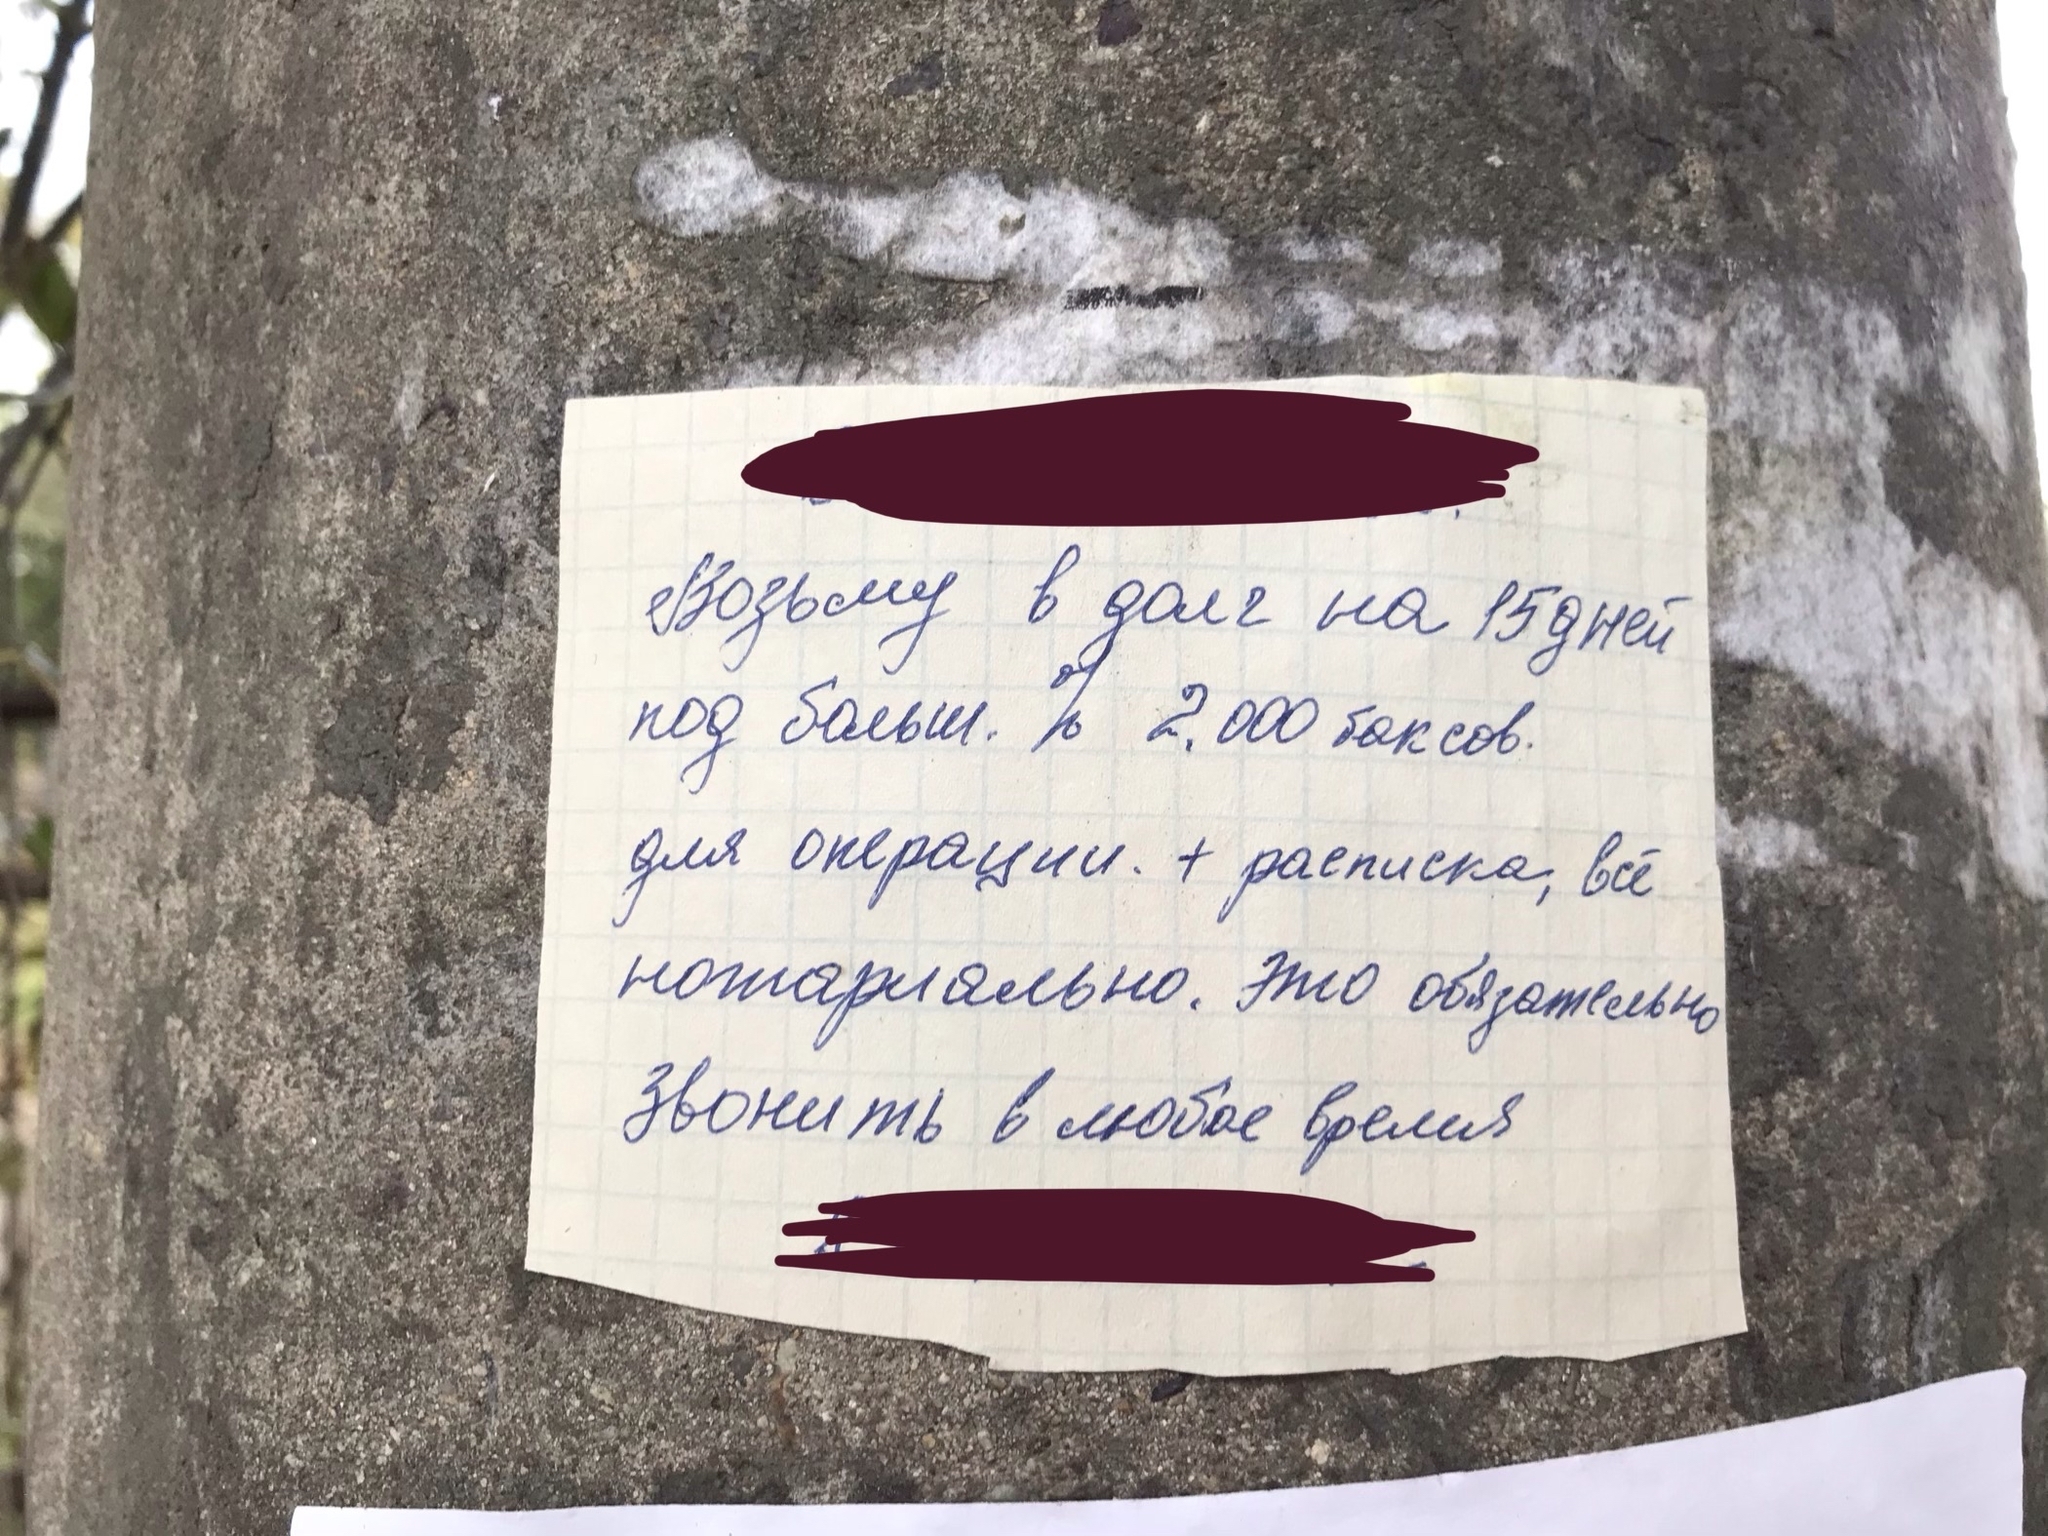 Возьму в долг на 15 дней
под больш. % 2.000 баксов.
для операции. + расписка, всё
нотариально. Это обязательно
Звонить в любое время